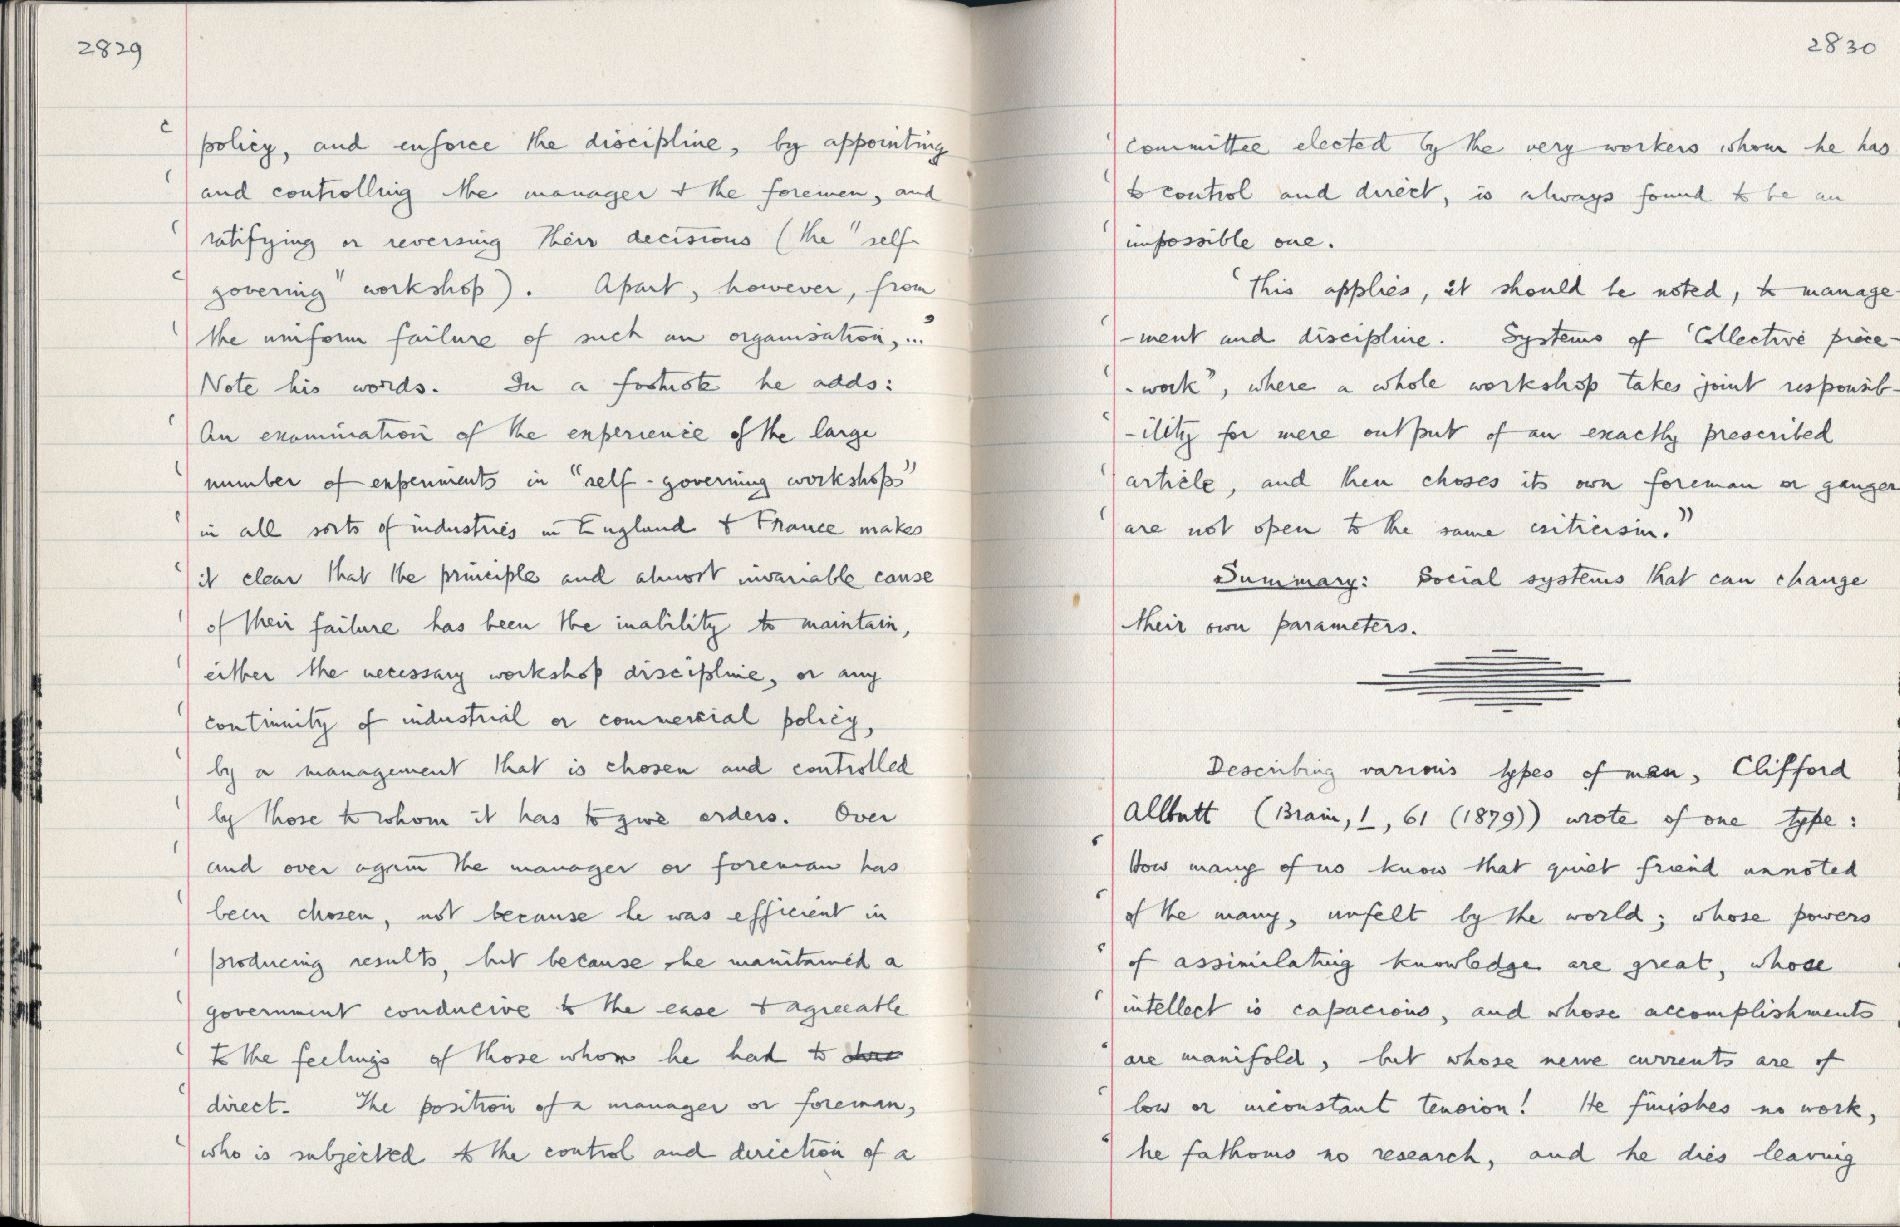 2829
' policy, and enforce the discipline, by appointing
' and controlling the manager + the foremen, and
' ratifying or reversing their decisions (the "self-
' governing" workshop). Apart, however, from
' the uniform failure of such an organisation,..."
Note his words. In a footnote he adds:
' An examination of the experience of the large
' number of experiments in "self-governing workshops"
' in all sorts of industries in England + France makes
' it clear that the principle and almost invariable cause
' of their failure has been the inability to maintain,
' either the necessary workshop discipline, or any
' continuity of industrial or commercial policy,
' by a management that is chosen and controlled
' by those to whom it has to give orders. Over
' and over again the manager or foreman has
' been chosen, not because he was efficient in
' producing results, but because he maintained a
' government conducive to the ease + agreeable
' to the feelings of those whom he had to
' direct. The position of a manager or foreman,
' who is subjected to the control and direction of a
2830
' committee elected by the very workers whom he has
' to control and direct, is always found to be an
' impossible one.
' This applies, it should be noted, to manage-
' -ment and discipline. Systems of 'Collective piece-
' -work', where a whole workshop takes joint responsib-
' -ility for mere output of an exactly prescribed
' article, and then choses its own foreman or ganger
' are not open to the same criticism."
Summary: Social systems that can change
their own parameters.
Describing various types of man, Clifford
Allbutt (Brain, 1, 61 (1879)) wrote of one type:
' How many of us know that quiet friend unnoted
' of the many, unfelt by the world; whose powers
' of assimilating knowledge are great, whose
' intellect is capacious, and whose accomplishments
' are manifold, but whose nerve currents are of
' low or inconstant tension! He finishes no work,
' he fathoms no research, and he dies leaving